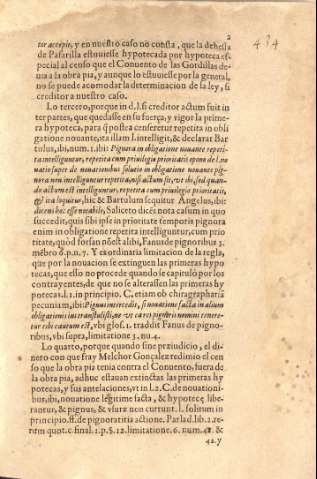 2
434
tor accepit, y en nuestro caso no consta, que la dehessa
de Pasarilla estouiesse hypotecada por hypoteca es-
pecial al censo que el Conuento de las Gordillas de-
uia a la obra pia, y aunque lo estuuiesse por la general,
no se puede acomodar la determinacion de la ley, si
creditor a nuestro caso.
Lo tercero, porque in d. l. si creditor actum fuit in
ter partes, que quedasse en su fuerça, y vigor la prime-
ra hypoteca, para q̃ postea censeretur repetita in obli
gatione nouante, ita illam intelligit, & declarat Bar
tulus, ibi, num. 1. ibi: Pignora in obligatione nouante repeti-
ta intelliguntur, repetita cum priuilegio prioritatis
natio super de nouationibus solutio in obligatione nouante pig-
nora non intelliguntur repetita, nisi actum sit, vt ibi, sed quan-
do actum est intelliguntur, repetita cum priuilegio prioritatis,
& ita loquitur, hic & Bartulum sequitur Angelus, ibi:
dicens hoc esse notabile, Saliceto dicès nota casum in quo
succedit, quis sibi ipse in prioritate temporis pignora
enim in obligatione repetita intelliguntur, cum prio
ritate, quòd forsan nõ est alibi, Fanus de pignoribus 3.
mẽbro 6. p. n. 7. Y es ordinaria limitacion de la regla,
que por la nouacion se extinguen las primeras hypo
tecas, que esso no procede quando se capitulò por los
contrayentes, de que no se alterassen las primeras hy
potecas. l. 1. in principio. C. etiam ob chirographariã
pecuniam, ibi: Pignus intercedit, si nouatione facta in alium
obligationis ius transtulisti, ne vt ea res pignoris nomine tenere-
tur tibi cautum est, vbi glos. 1. traddit Fanus de pigno-
ribus, vbi supra, limitatione 3. nu. 4.
Lo quarto, porque quando sine præiudicio, el di-
nero con que fray Melchor Gonçalez redimio el cen
so que la obra pia tenia contra el Conuento, fuera de
la obra pia, adhuc estauan extinctas las primeras hy
potecas, y sus antelaciones, vt in l. 2. C. de nouationi-
bus, ibi, nouatione legitime facta, & hypotecę libe-
rantur, & pignus, & vsurę non currunt. l. solutum in
principio. ff. de pignoratitis actione. Par lad. lib. 2. re-
rum quot. c. final. 1. p. §. 12. limitatione. 6. num. 41. &
42. y